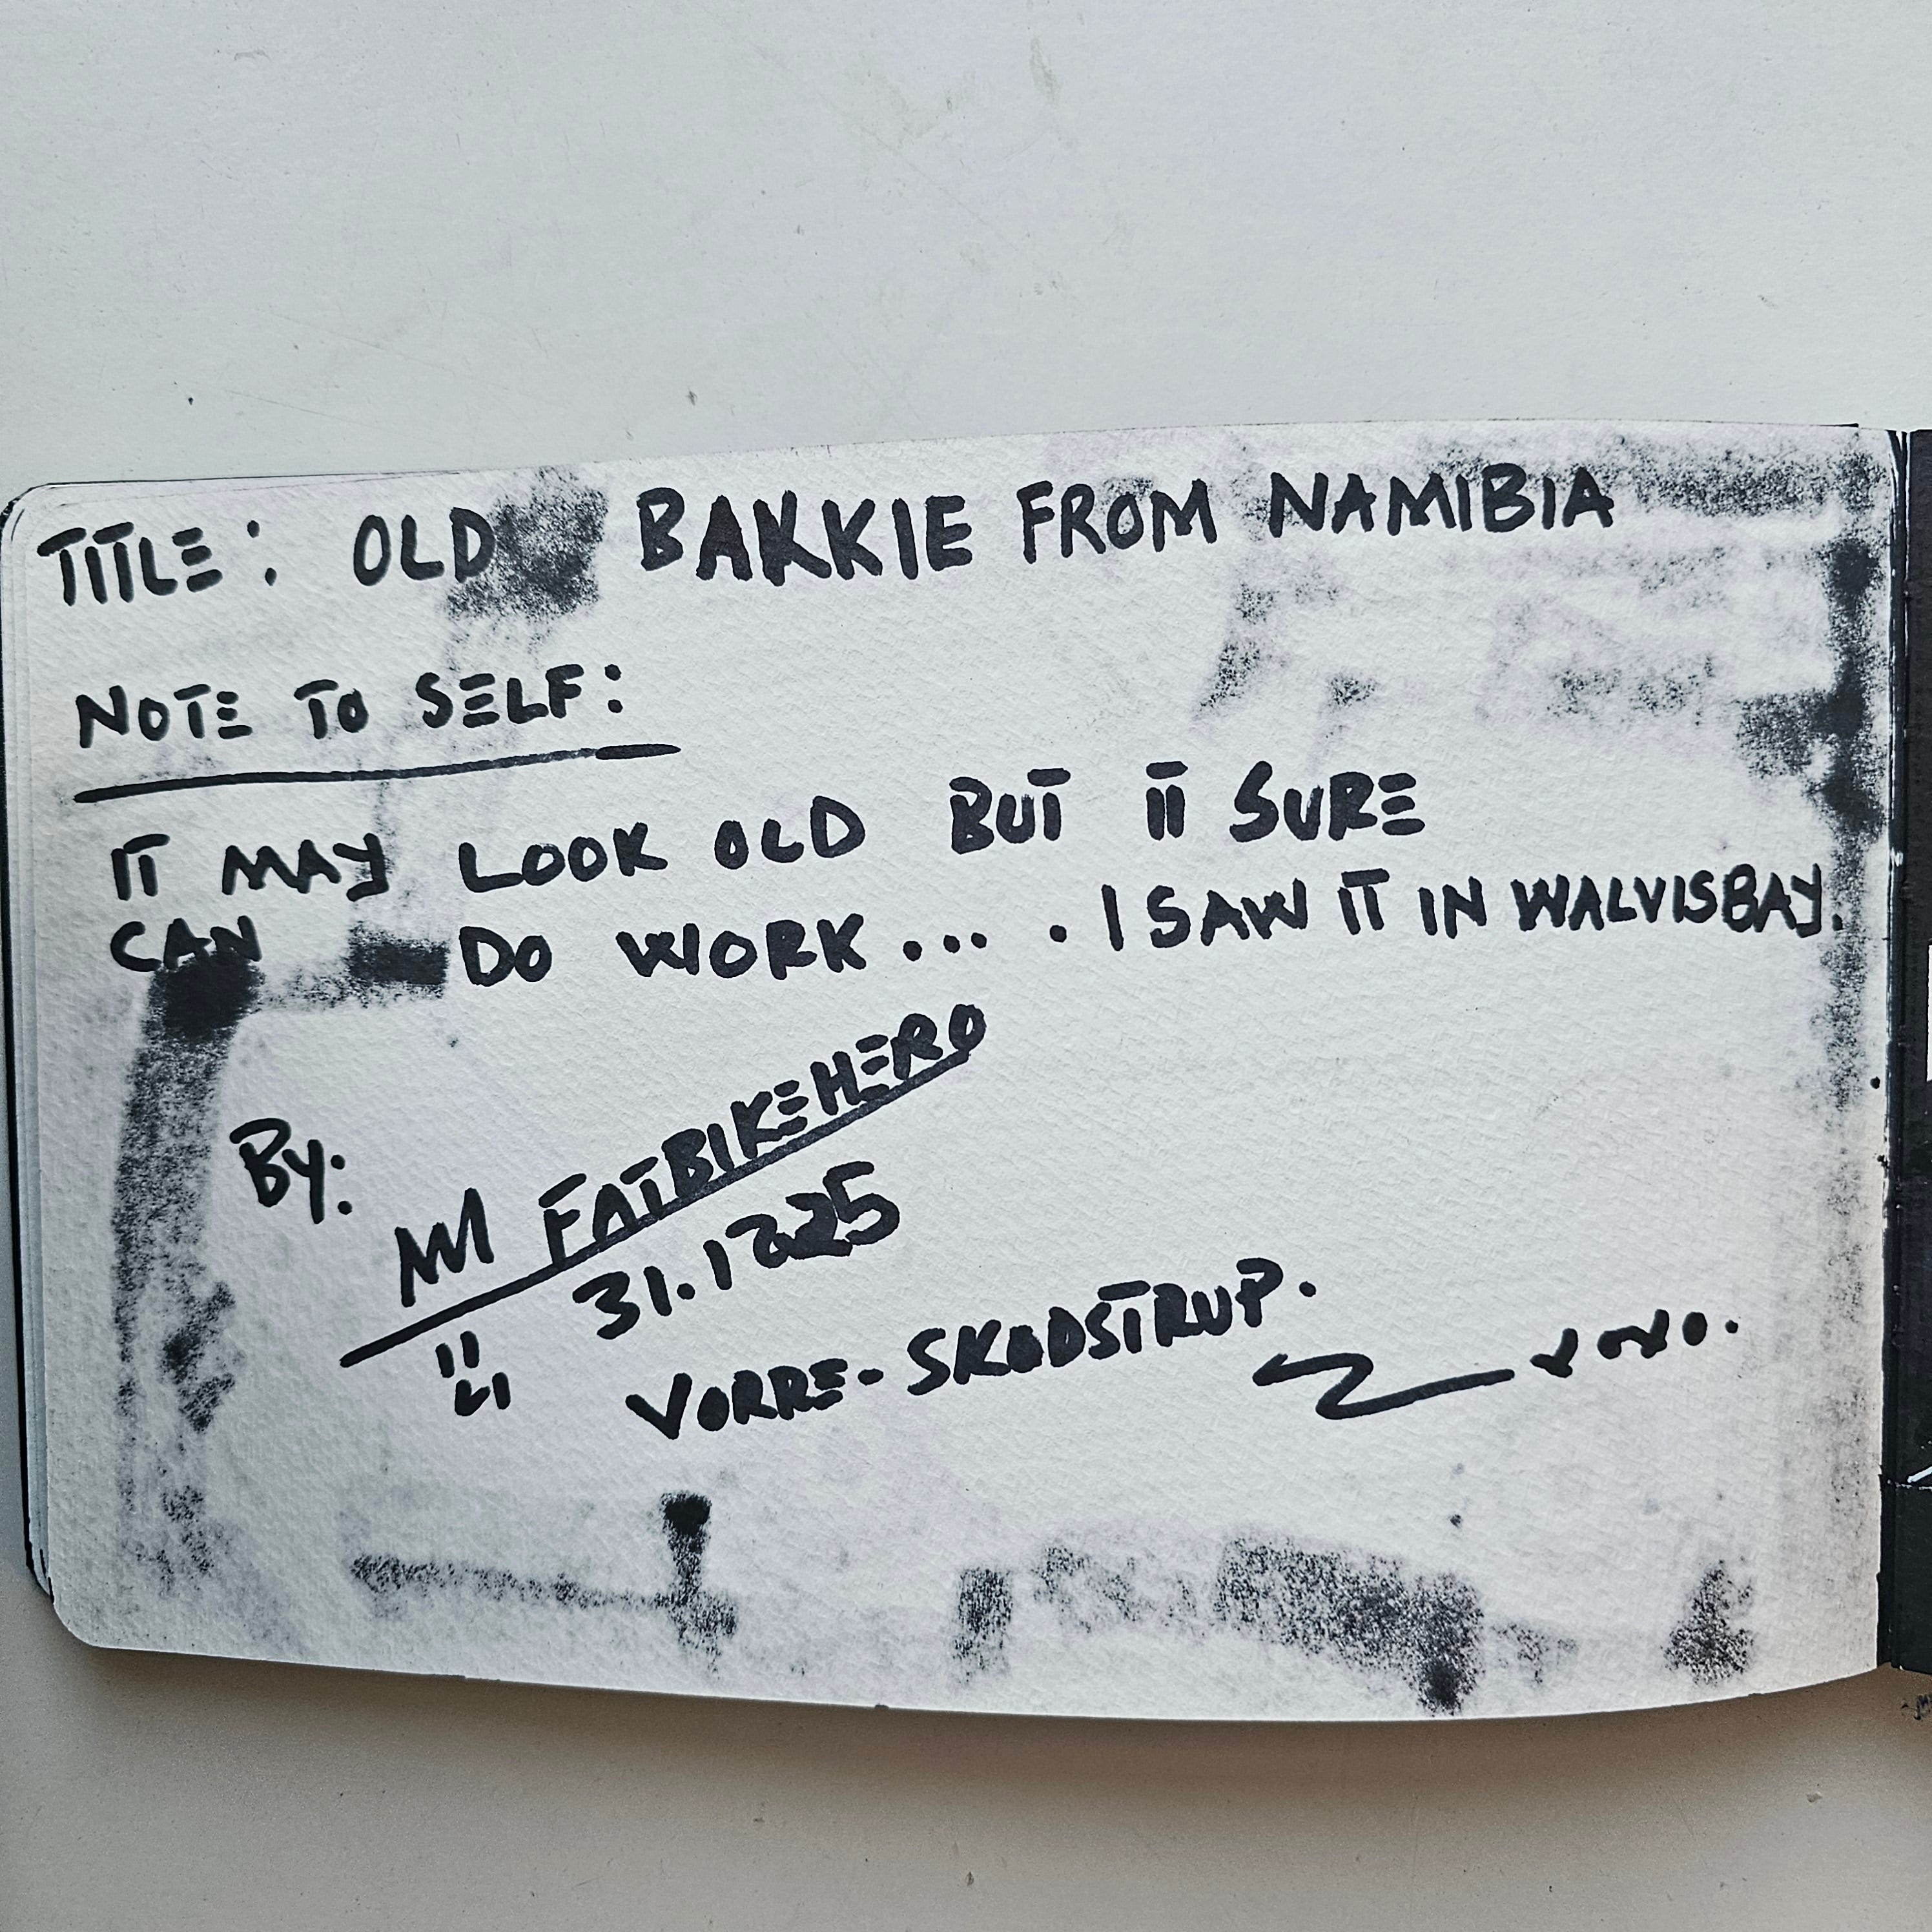 TITLE: OLD BAKKIE FROM NAMIBIA
NOTE TO SELF:
IT MAY LOOK OLD BUT IT SURE
CAN DO WORK... . I SAW IT IN WALVISBAY.
By: M FATBIKEHERO
31.1225
VORRE-SKODSTRUP.
xoxo.